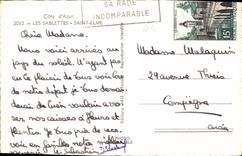 SA RADE
INCOMPARABLE
Côte d'Azur
2032 — LES SABLETTES - SAINT-ELME
15F
Chère Madame.
Nous voici arrivés au
pays du soleil. N'ayant pas
eu le plaisir de vous voir lors
de notre départ je vous deman-
derai de bien vouloir arro-
ser nos caisses à fleurs et
plantes. Je vous prie de rece-
voir en
St Sébastien
Madame Malaquin
29 avenue Thiers
Compiègne
Oise